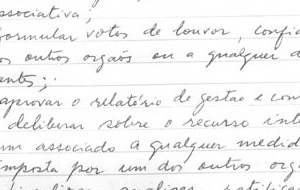 ssociativa;
formular votos de louvor, confia
os outros orgaõs ou a qualquer d
entes;
aprovar o relatório de gestão e con
deliberar sobre o recurso int
um associado a qualquer medid
imposta por um dos outros org